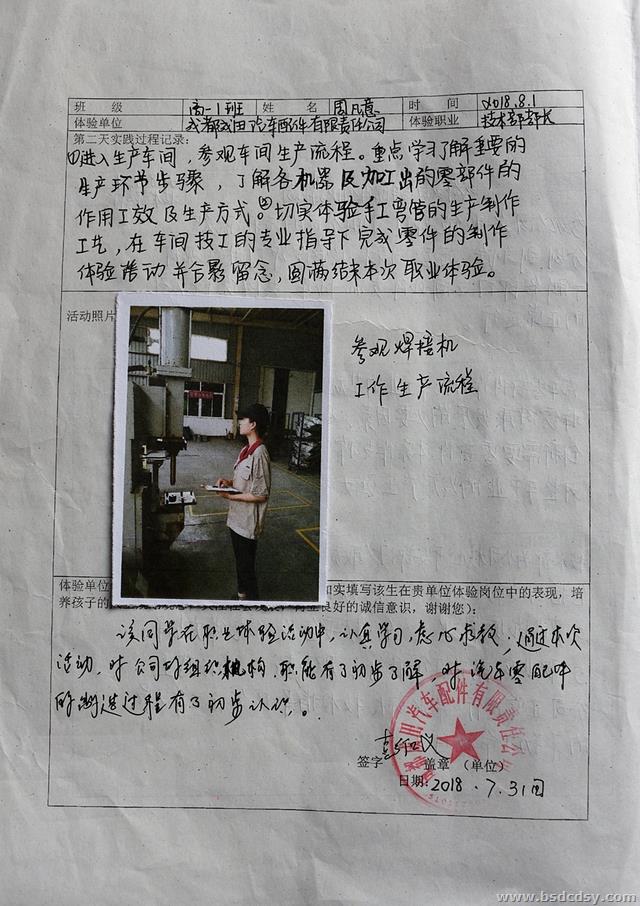 班 级 高一1班 姓 名 周凡意 时 间 2018.8.1
体验单位 成都成田汽车配件有限责任公司 体验职业 技术部部长
第二天实践过程记录:
①进入生产车间,参观车间生产流程。重点学习了解重要的
生产环节步骤,了解各机器及加工出的零部件的
作用工效及生产方式。②切实体验手工弯管的生产制作
工艺,在车间技工的专业指导下完成零件的制作
体验活动并合影留念,圆满结束本次职业体验。
活动照片
参观焊接机
工作生产流程
体验单位 如实填写该生在贵单位体验岗位中的表现,培
养孩子的 良好的诚信意识,谢谢您):
该同学在职业体验活动中,认真学习,虚心求教,通过本次
活动,对公司的组织机构、职能有了初步了解,对汽车零配件
的制造过程有了初步认识。
汽车配件有限责任公司
签字 盖章 (单位)
日期:2018.7.31日
www.bsdcdsy.com